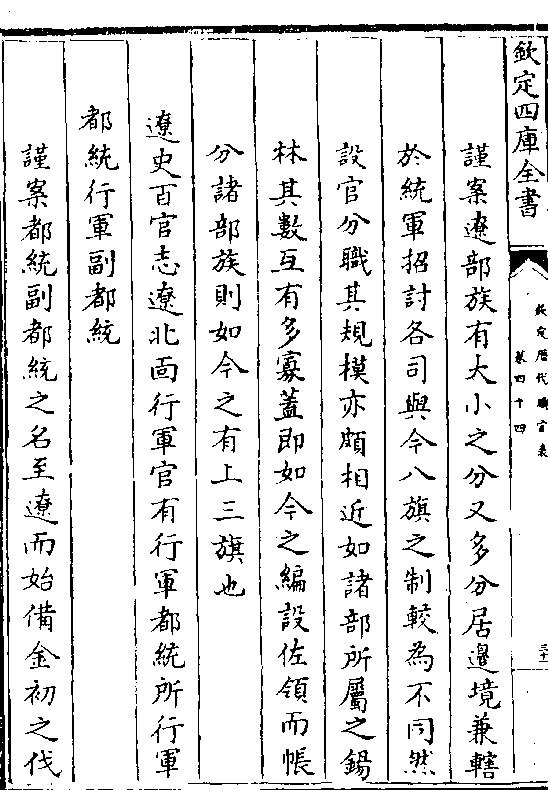 欽定四庫全書
欽定歷代職官表
卷四十四
謹案遼部族有大小之分又多分居邊境兼轄
於統軍招討各司與今八旗之制較為不同然
設官分職其規模亦頗相近如諸部所屬之錫
林其數互有多寡蓋即如今之編設佐領而帳
分諸部族則如今之有上三旗也
遼史百官志遼北面行軍官有行軍都統所行軍
都統行軍副都統
謹案都統副都統之名至遼而始備金初之伐